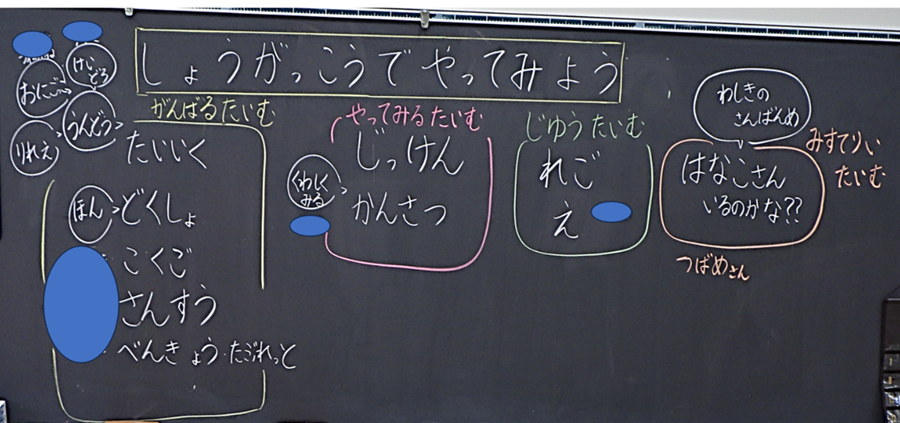 しょうがっこうでやってみよう
けいどろ
おにごっこ
うんどう
りれえ
がんばるたいむ
たいいく
ほん
どくしょ
こくご
さんすう
べんきょう・たぶれっと
やってみるたいむ
じっけん
くわしく
みる
かんさつ
じゆうたいむ
れご
え
わしきの
さんばんめ
みすてりい
たいむ
はなこさん
いるのかな??
つばめさん